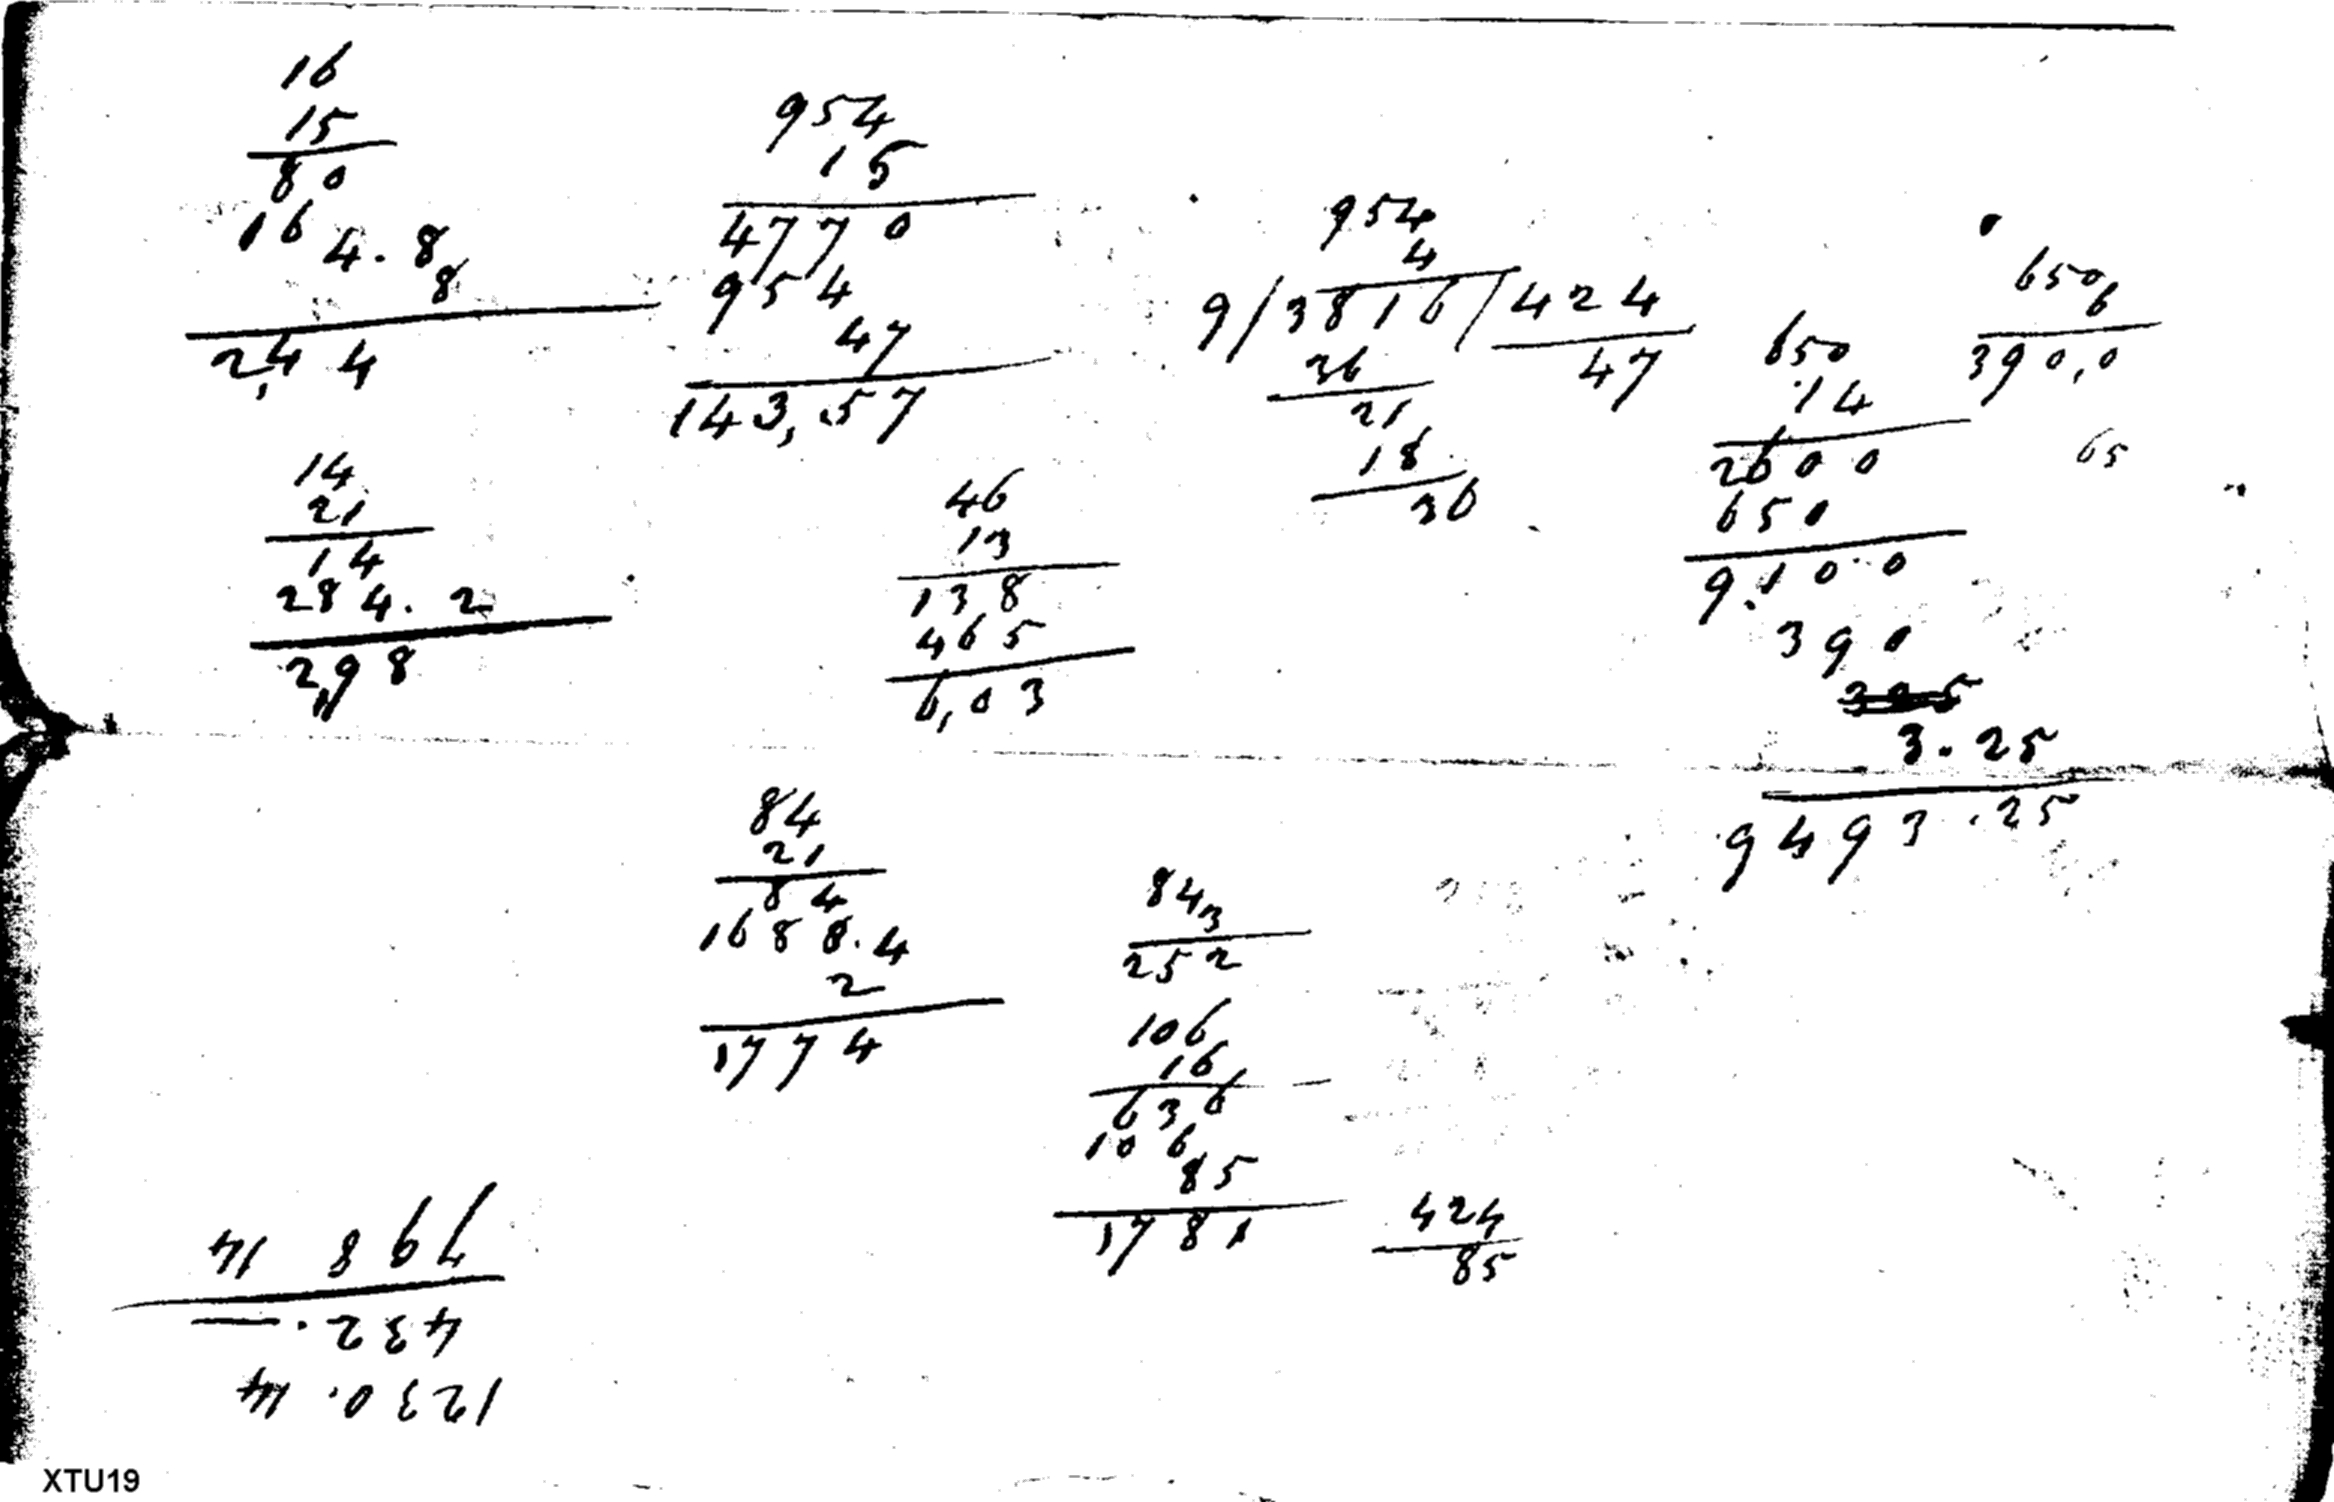 16
15
80
16 4.8
8
2,44
954
15
4770
954
47
143,57
954
4
9/3816/424
36 47
21
18
36
650
6
390,0
65
650
14
2600
650
9.100
390
3.25
9493.25
14
21
14
284.2
298
46
13
138
465
6,03
84
21
84
1688.4
2
1774
84
3
252
106
16
636
106
85
1781
424
85
1230.14
432.—
798 14
XTU19